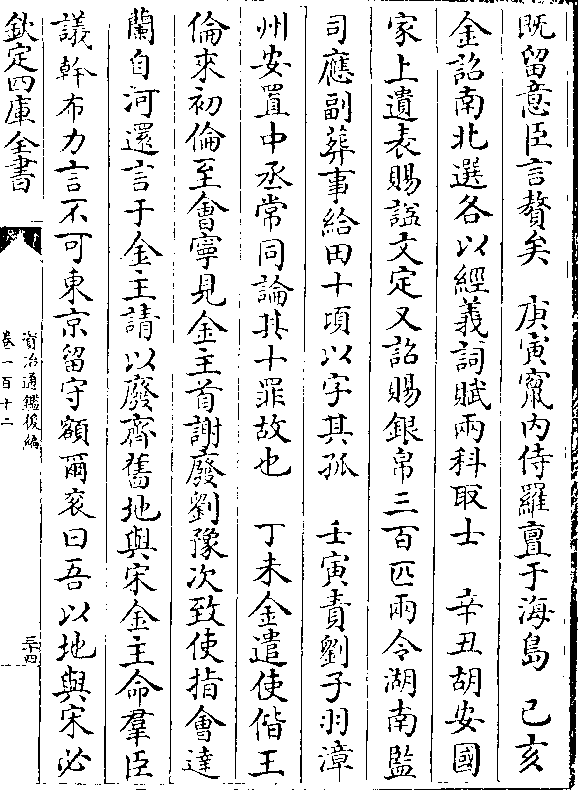 既留意臣言贅矣　庚寅竄内侍羅亶于海島　己亥
金詔南北選各以經義詞賦兩科取士　辛丑胡安國
家上遺表賜諡文定又詔賜銀帛三百匹兩令湖南監
司應副葬事給田十項以字其孤　壬寅責劉子羽漳
州安置中丞常同論其十罪故也　丁未金遣使偕王
倫來初倫至會寧見金主首謝廢劉豫次致使指會達
蘭自河還言于金主請以廢齊舊地與宋金主命羣臣
議幹布力言不可東京留守額爾衮曰吾以地與宋必
欽定四庫全書
資治通鑑後編
卷一百十二
三十四